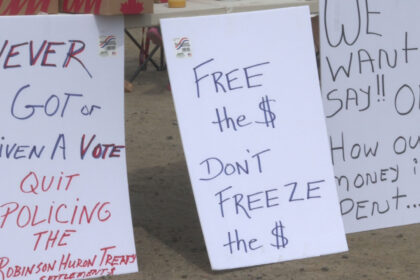 EVER
GOT or
IVEN A VOTE
QUIT
POLICING
THE
ROBINSON HURON TREATY
SETTLEMENTS
FREE
the $
DON'T
FREEZE
the $
WE
WANT
SAY!!
HOW OU
MONEY i
PENT...